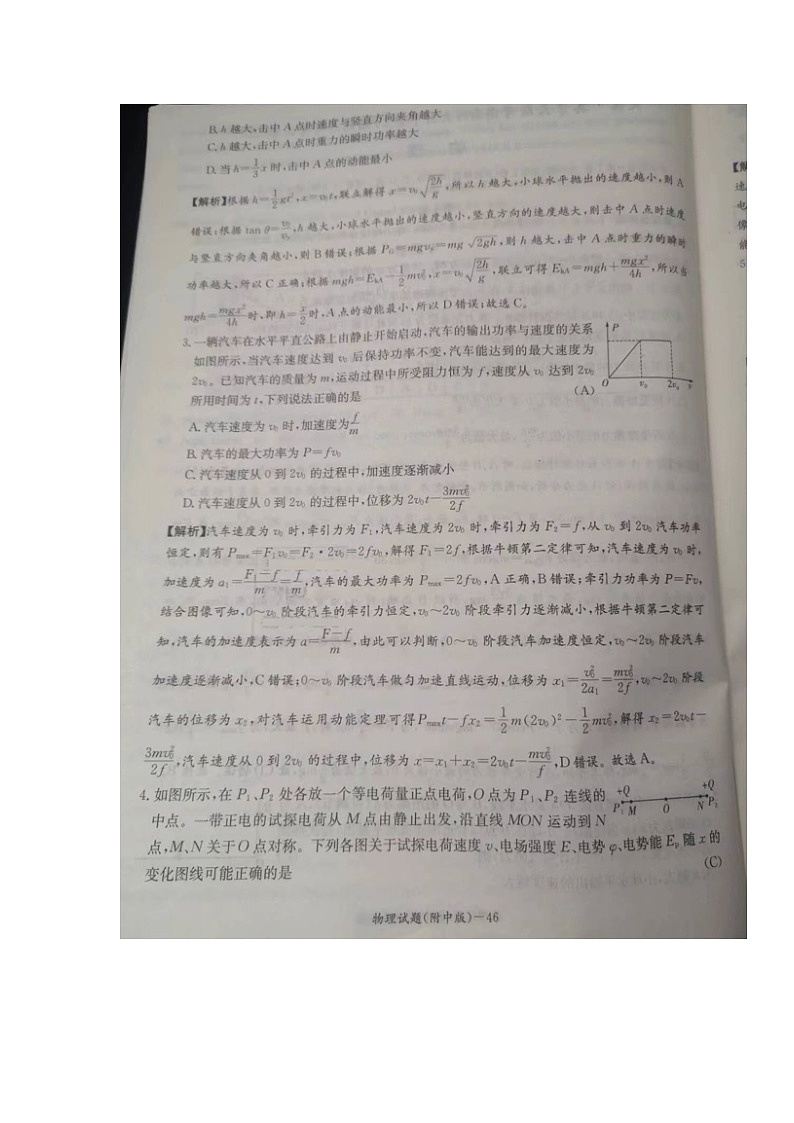 B. h 越大,击中 A 点时速度与竖直方向夹角越大
C. h 越大,击中 A 点时重力的瞬时功率越大
D. 当 h=1/3 x 时,击中 A 点的动能最小
【解析】根据 h=1/2 gt²,x=v₀t,联立解得 x=v₀√(2h/g),所以 h 越大,小球水平抛出的速度越小,则 A
错误;根据 tan θ=v₀/vᵧ,h 越大,小球水平抛出的速度越小,竖直方向的速度越大,则击中 A 点时速度
与竖直方向夹角越小,则 B 错误;根据 P_G=mgvᵧ=mg√(2gh),则 h 越大,击中 A 点时重力的瞬时
功率越大,所以 C 正确;根据 mgh=E_kA−1/2 mv₀²,x=v₀√(2h/g),联立可得 E_kA=mgh+mgx²/4h,所以当
mgh=mgx²/4h 时,即 h=x/2 时,A 点的动能最小,所以 D 错误;故选 C。
3. 一辆汽车在水平平直公路上由静止开始启动,汽车的输出功率与速度的关系
如图所示,当汽车速度达到 v₀ 后保持功率不变,汽车能达到的最大速度为
2v₀。已知汽车的质量为 m,运动过程中所受阻力恒为 f,速度从 v₀ 达到 2v₀
所用时间为 t,下列说法正确的是 (A)
P
O v₀ 2v₀ v
A. 汽车速度为 v₀ 时,加速度为 f/m
B. 汽车的最大功率为 P=fv₀
C. 汽车速度从 0 到 2v₀ 的过程中,加速度逐渐减小
D. 汽车速度从 0 到 2v₀ 的过程中,位移为 2v₀t−3mv₀²/2f
【解析】汽车速度为 v₀ 时,牵引力为 F₁,汽车速度为 2v₀ 时,牵引力为 F₂=f,从 v₀ 到 2v₀ 汽车功率
恒定,则有 Pmax=F₁v₀=F₂·2v₀=2fv₀,解得 F₁=2f,根据牛顿第二定律可知,汽车速度为 v₀ 时,
加速度为 a₁=(F₁−f)/m=f/m,汽车的最大功率为 Pmax=2fv₀,A 正确,B 错误;牵引力功率为 P=Fv,
结合图像可知,0~v₀ 阶段汽车的牵引力恒定,v₀~2v₀ 阶段牵引力逐渐减小,根据牛顿第二定律可
知,汽车的加速度表示为 a=(F−f)/m,由此可以判断,0~v₀ 阶段汽车加速度恒定,v₀~2v₀ 阶段汽车
加速度逐渐减小,C 错误;0~v₀ 阶段汽车做匀加速直线运动,位移为 x₁=v₀²/2a₁=mv₀²/2f,v₀~2v₀ 阶段
汽车的位移为 x₂,对汽车运用动能定理可得Pmaxt−fx₂=1/2 m(2v₀)²−1/2 mv₀²,解得 x₂=2v₀t−
3mv₀²/2f,汽车速度从 0 到 2v₀ 的过程中,位移为 x=x₁+x₂=2v₀t−mv₀²/f,D 错误。故选 A。
4. 如图所示,在 P₁、P₂ 处各放一个等电荷量正点电荷,O 点为 P₁、P₂ 连线的
中点。一带正电的试探电荷从 M 点由静止出发,沿直线 MON 运动到 N
点,M、N 关于 O 点对称。下列各图关于试探电荷速度 v、电场强度 E、电势 φ、电势能 Eₚ 随 x 的
变化图线可能正确的是 (C)
+Q +Q
P₁ M O N P₂
物理试题(附中版)—46
【解
速
电
像
能
5